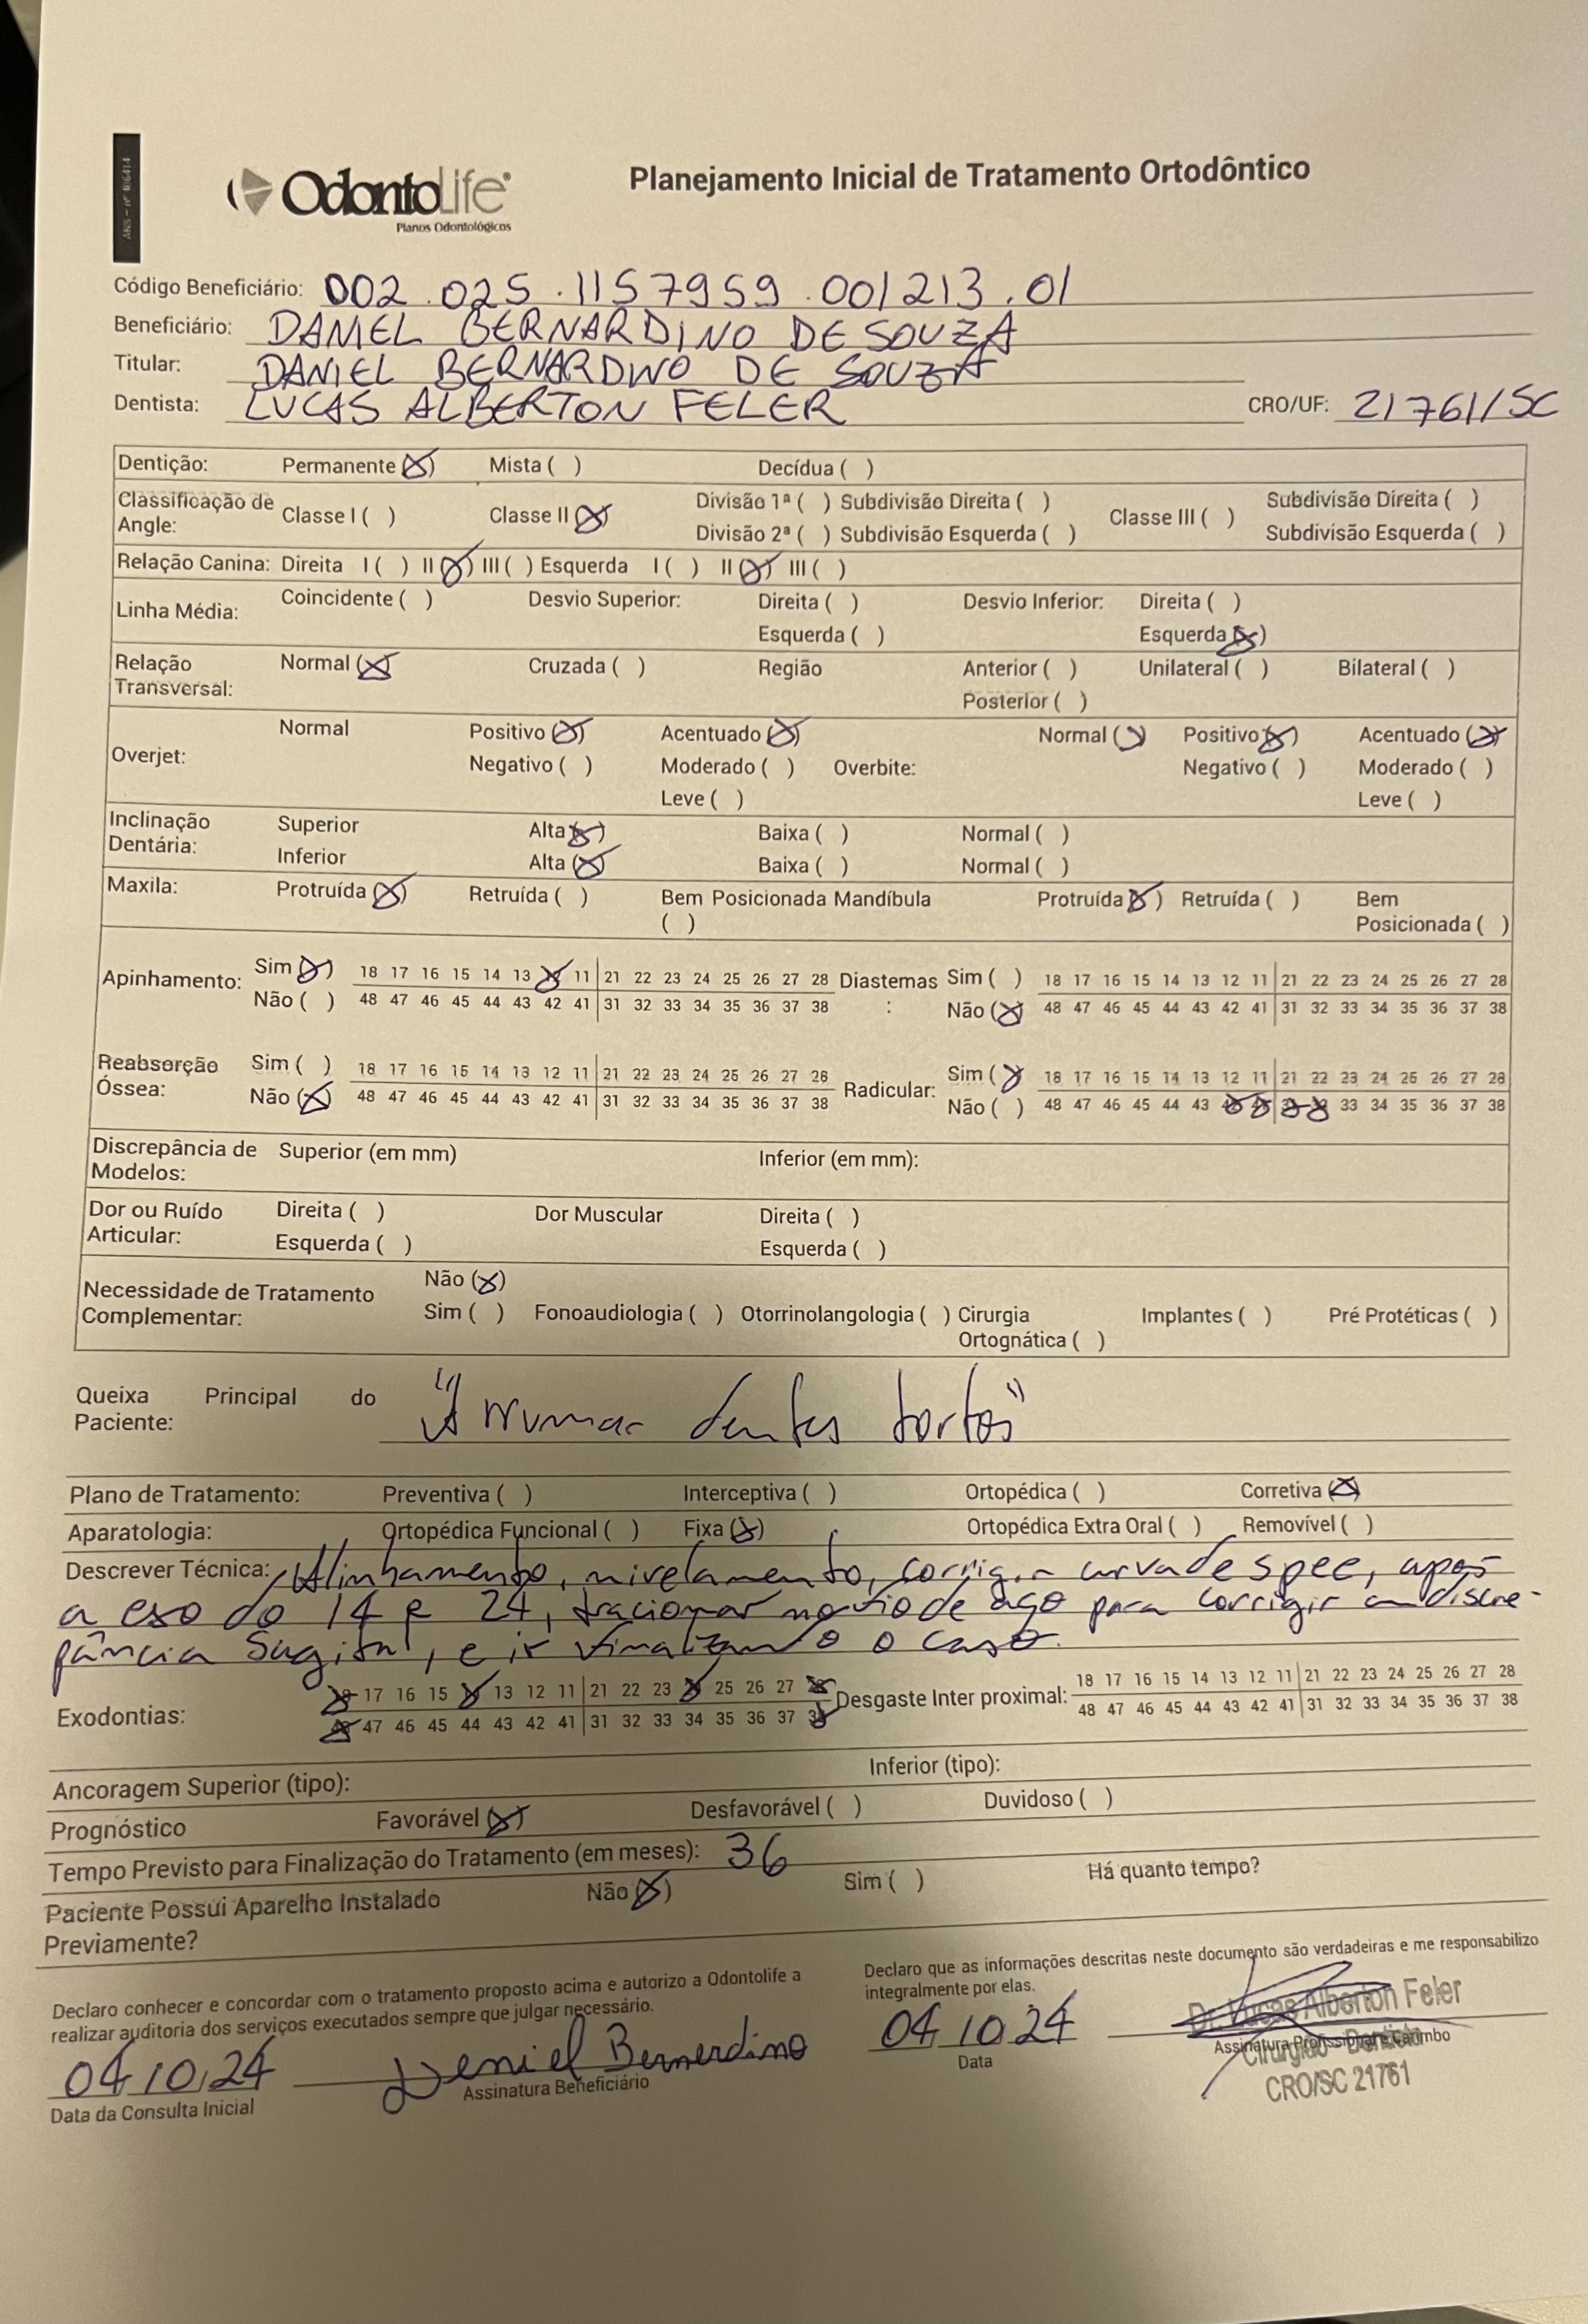 ANS - nº 406414
OdontoLife®
Planos Odontológicos
Planejamento Inicial de Tratamento Ortodôntico
Código Beneficiário: 002.025.1157959.001213.01
Beneficiário: DANIEL BERNARDINO DE SOUZA
Titular: DANIEL BERNARDINO DE SOUZA
Dentista: LUCAS ALBERTON FELER CRO/UF: 21761/SC
Dentição: Permanente (X) Mista ( ) Decídua ( )
Classificação de Angle: Classe I ( ) Classe II (X) Divisão 1ª ( ) Subdivisão Direita ( ) Classe III ( ) Subdivisão Direita ( )
Divisão 2ª ( ) Subdivisão Esquerda ( ) Subdivisão Esquerda ( )
Relação Canina: Direita I ( ) II (X) III ( ) Esquerda I ( ) II (X) III ( )
Linha Média: Coincidente ( ) Desvio Superior: Direita ( ) Desvio Inferior: Direita ( )
Esquerda ( ) Esquerda (X)
Relação Transversal: Normal (X) Cruzada ( ) Região Anterior ( ) Unilateral ( ) Bilateral ( )
Posterior ( )
Overjet: Normal Positivo (X) Acentuado (X) Overbite: Normal (X) Positivo (X) Acentuado (X)
Negativo ( ) Moderado ( ) Negativo ( ) Moderado ( )
Leve ( ) Leve ( )
Inclinação Dentária: Superior Alta (X) Baixa ( ) Normal ( )
Inferior Alta (X) Baixa ( ) Normal ( )
Maxila: Protruída (X) Retruída ( ) Bem Posicionada ( ) Mandíbula Protruída (X) Retruída ( ) Bem Posicionada ( )
Apinhamento: Sim (X) 18 17 16 15 14 13 12 11 21 22 23 24 25 26 27 28 Diastemas : Sim ( ) 18 17 16 15 14 13 12 11 21 22 23 24 25 26 27 28
Não ( ) 48 47 46 45 44 43 42 41 31 32 33 34 35 36 37 38 Não (X) 48 47 46 45 44 43 42 41 31 32 33 34 35 36 37 38
Reabsorção Óssea: Sim ( ) 18 17 16 15 14 13 12 11 21 22 23 24 25 26 27 28 Radicular: Sim (X) 18 17 16 15 14 13 12 11 21 22 23 24 25 26 27 28
Não (X) 48 47 46 45 44 43 42 41 31 32 33 34 35 36 37 38 Não ( ) 48 47 46 45 44 43 42 41 31 32 33 34 35 36 37 38
Discrepância de Modelos: Superior (em mm) Inferior (em mm):
Dor ou Ruído Articular: Direita ( ) Dor Muscular Direita ( )
Esquerda ( ) Esquerda ( )
Necessidade de Tratamento Complementar: Não (X)
Sim ( ) Fonoaudiologia ( ) Otorrinolangologia ( ) Cirurgia Ortognática ( ) Implantes ( ) Pré Protéticas ( )
Queixa Principal do Paciente: "Arrumar dentes tortos"
Plano de Tratamento: Preventiva ( ) Interceptiva ( ) Ortopédica ( ) Corretiva (X)
Aparatologia: Ortopédica Funcional ( ) Fixa (X) Ortopédica Extra Oral ( ) Removível ( )
Descrever Técnica: Alinhamento, nivelamento, corrigir curva de spee, após
a exo do 14 e 24, tracionar no fio de aço para corrigir a discre-
pância Sagital, e ir finalizando o caso.
Exodontias: 18 17 16 15 14 13 12 11 21 22 23 24 25 26 27 28 Desgaste Inter proximal: 18 17 16 15 14 13 12 11 21 22 23 24 25 26 27 28
48 47 46 45 44 43 42 41 31 32 33 34 35 36 37 38 48 47 46 45 44 43 42 41 31 32 33 34 35 36 37 38
Ancoragem Superior (tipo): Inferior (tipo):
Prognóstico Favorável (X) Desfavorável ( ) Duvidoso ( )
Tempo Previsto para Finalização do Tratamento (em meses): 36
Paciente Possui Aparelho Instalado Previamente? Não (X) Sim ( ) Há quanto tempo?
Declaro conhecer e concordar com o tratamento proposto acima e autorizo a Odontolife a
realizar auditoria dos serviços executados sempre que julgar necessário.
Declaro que as informações descritas neste documento são verdadeiras e me responsabilizo
integralmente por elas.
04/10/24 Daniel Bernardino 04/10/24
Data da Consulta Inicial Assinatura Beneficiário Data Assinatura Profissional e Carimbo
Dr. Lucas Alberton Feler
Cirurgião - Dentista
CRO/SC 21761